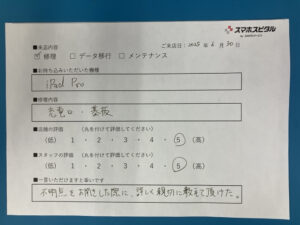 スマホスピタル
ご来店日: 2025 年 6 月 30 日
■来店内容
☑ 修理 □ データ移行 □ メンテナンス
■お持ち込みいただいた機種
iPad Pro
■修理内容
充電口・基板
■店舗の評価 (点を付けて評価してください)
(低) 1 ・ 2 ・ 3 ・ 4 ・ 5 (高)
■スタッフの評価 (点を付けて評価してください)
(低) 1 ・ 2 ・ 3 ・ 4 ・ 5 (高)
■一言いただけますと幸いです
不明点をお聞きした際に、詳しく親切に教えて頂けた。